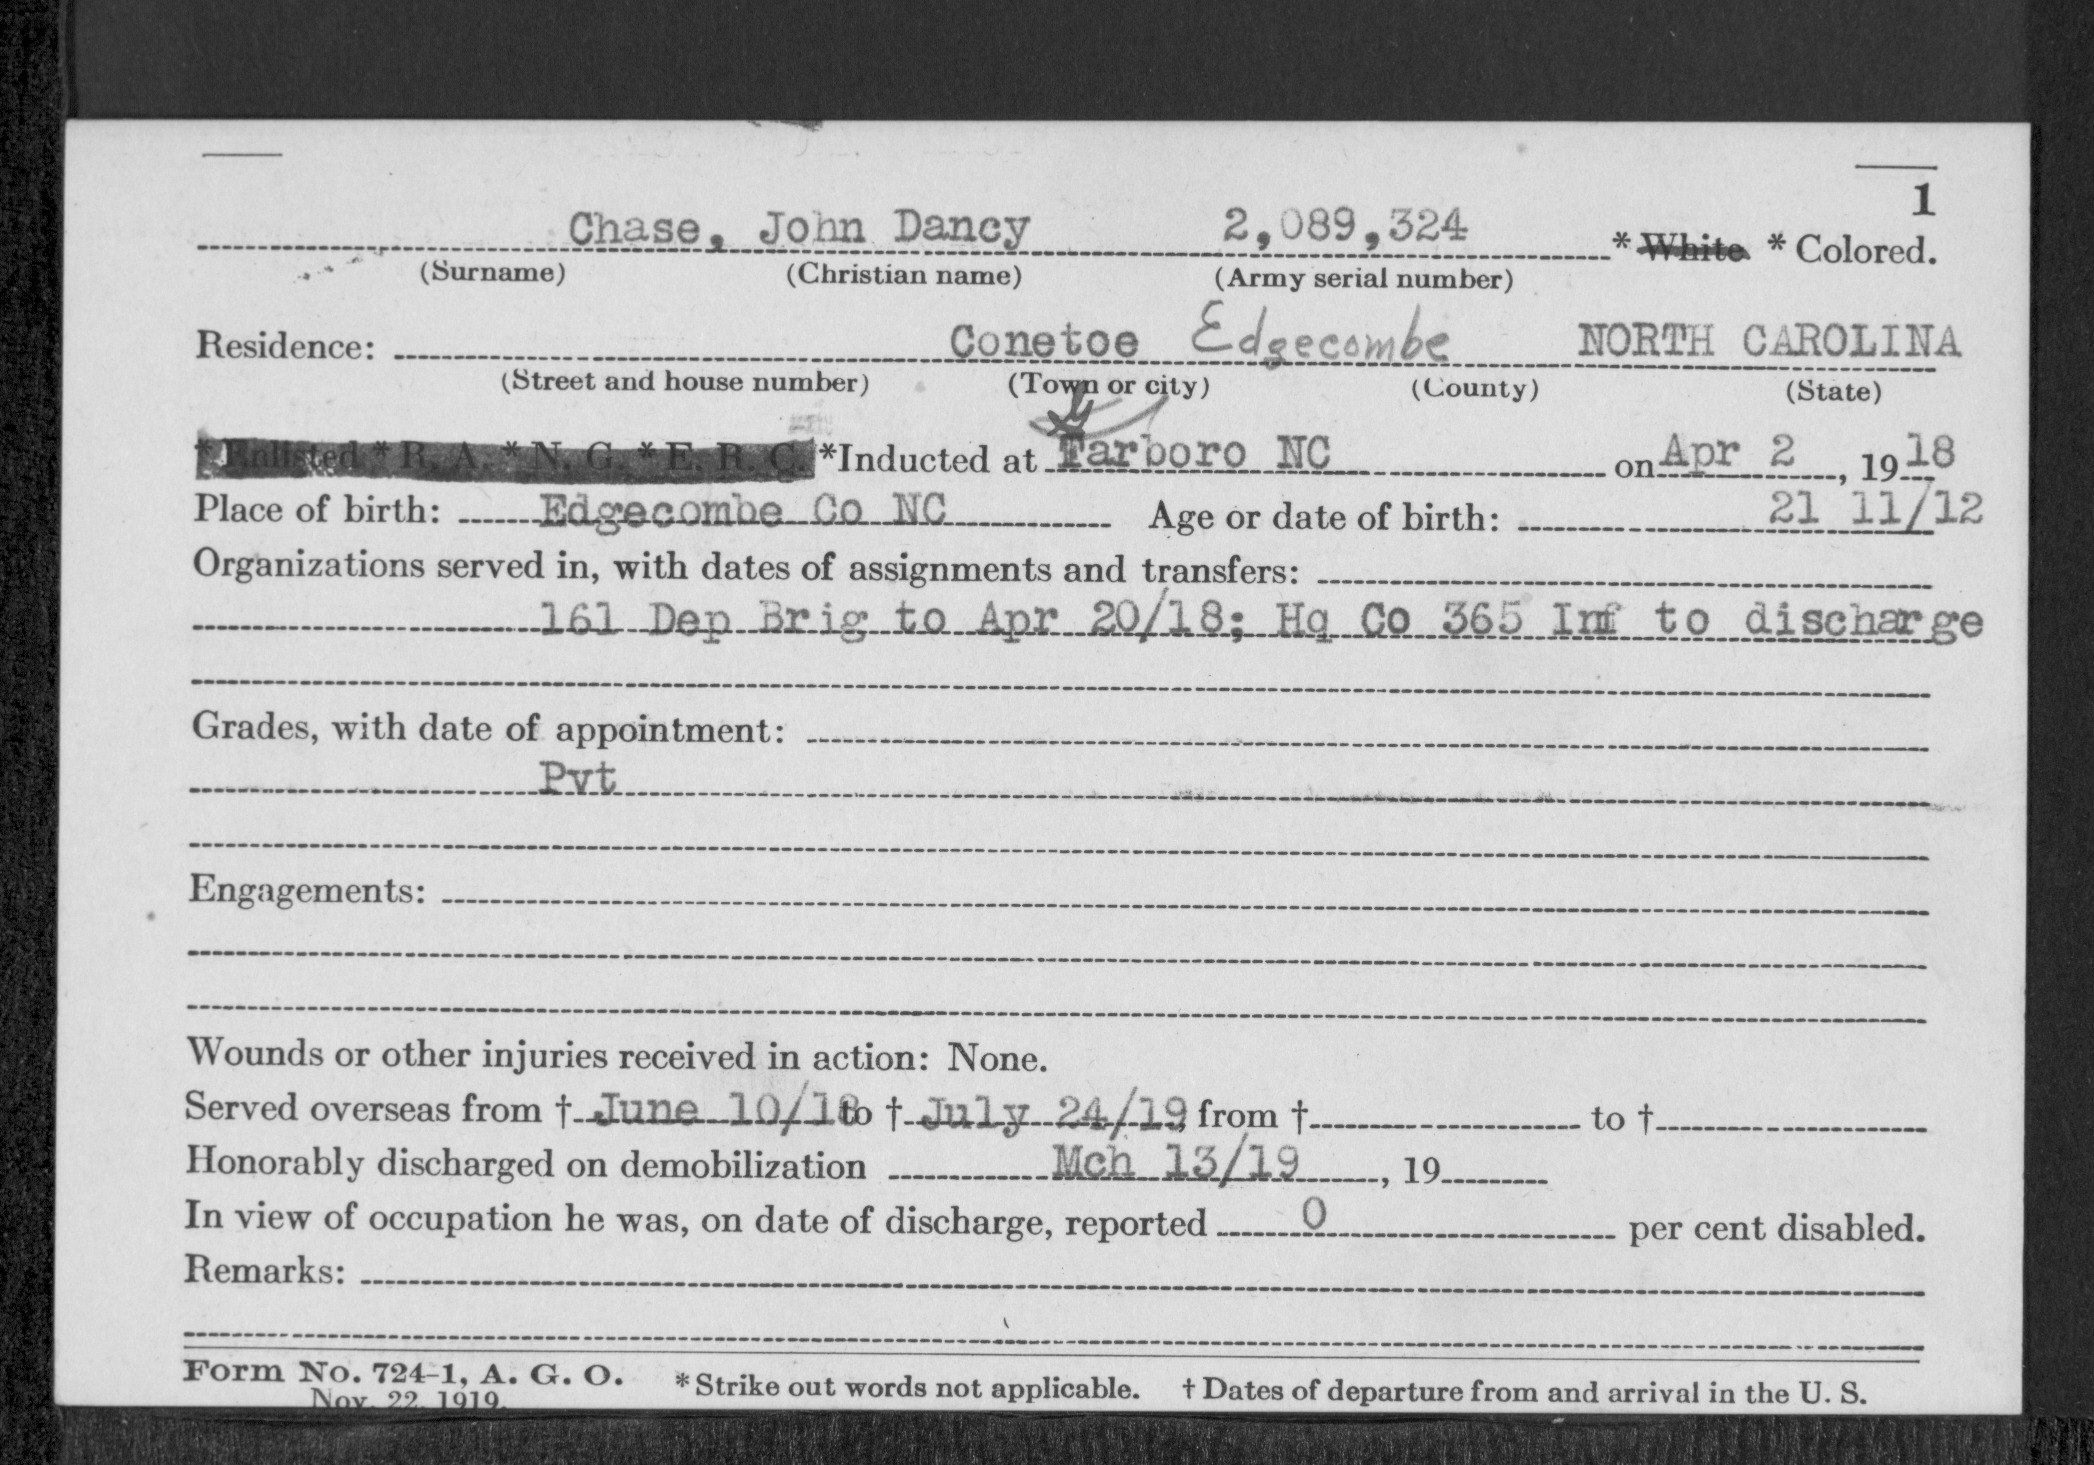 1
Chase, John Dancy 2,089,324 * White * Colored.
(Surname) (Christian name) (Army serial number)
Residence: Conetoe Edgecombe NORTH CAROLINA
(Street and house number) (Town or city) (County) (State)
* Enlisted * R. A. * N. G. * E. R. C. *Inducted at Tarboro NC on Apr 2, 19 18
Place of birth: Edgecombe Co NC Age or date of birth: 21 11/12
Organizations served in, with dates of assignments and transfers:
161 Dep Brig to Apr 20/18; Hq Co 365 Inf to discharge
Grades, with date of appointment:
Pvt
Engagements:
Wounds or other injuries received in action: None.
Served overseas from † June 10/18 to † July 24/19, from † to †
Honorably discharged on demobilization Mch 13/19, 19
In view of occupation he was, on date of discharge, reported 0 per cent disabled.
Remarks:
Form No. 724-1, A. G. O. * Strike out words not applicable. † Dates of departure from and arrival in the U. S.
Nov. 22, 1919.